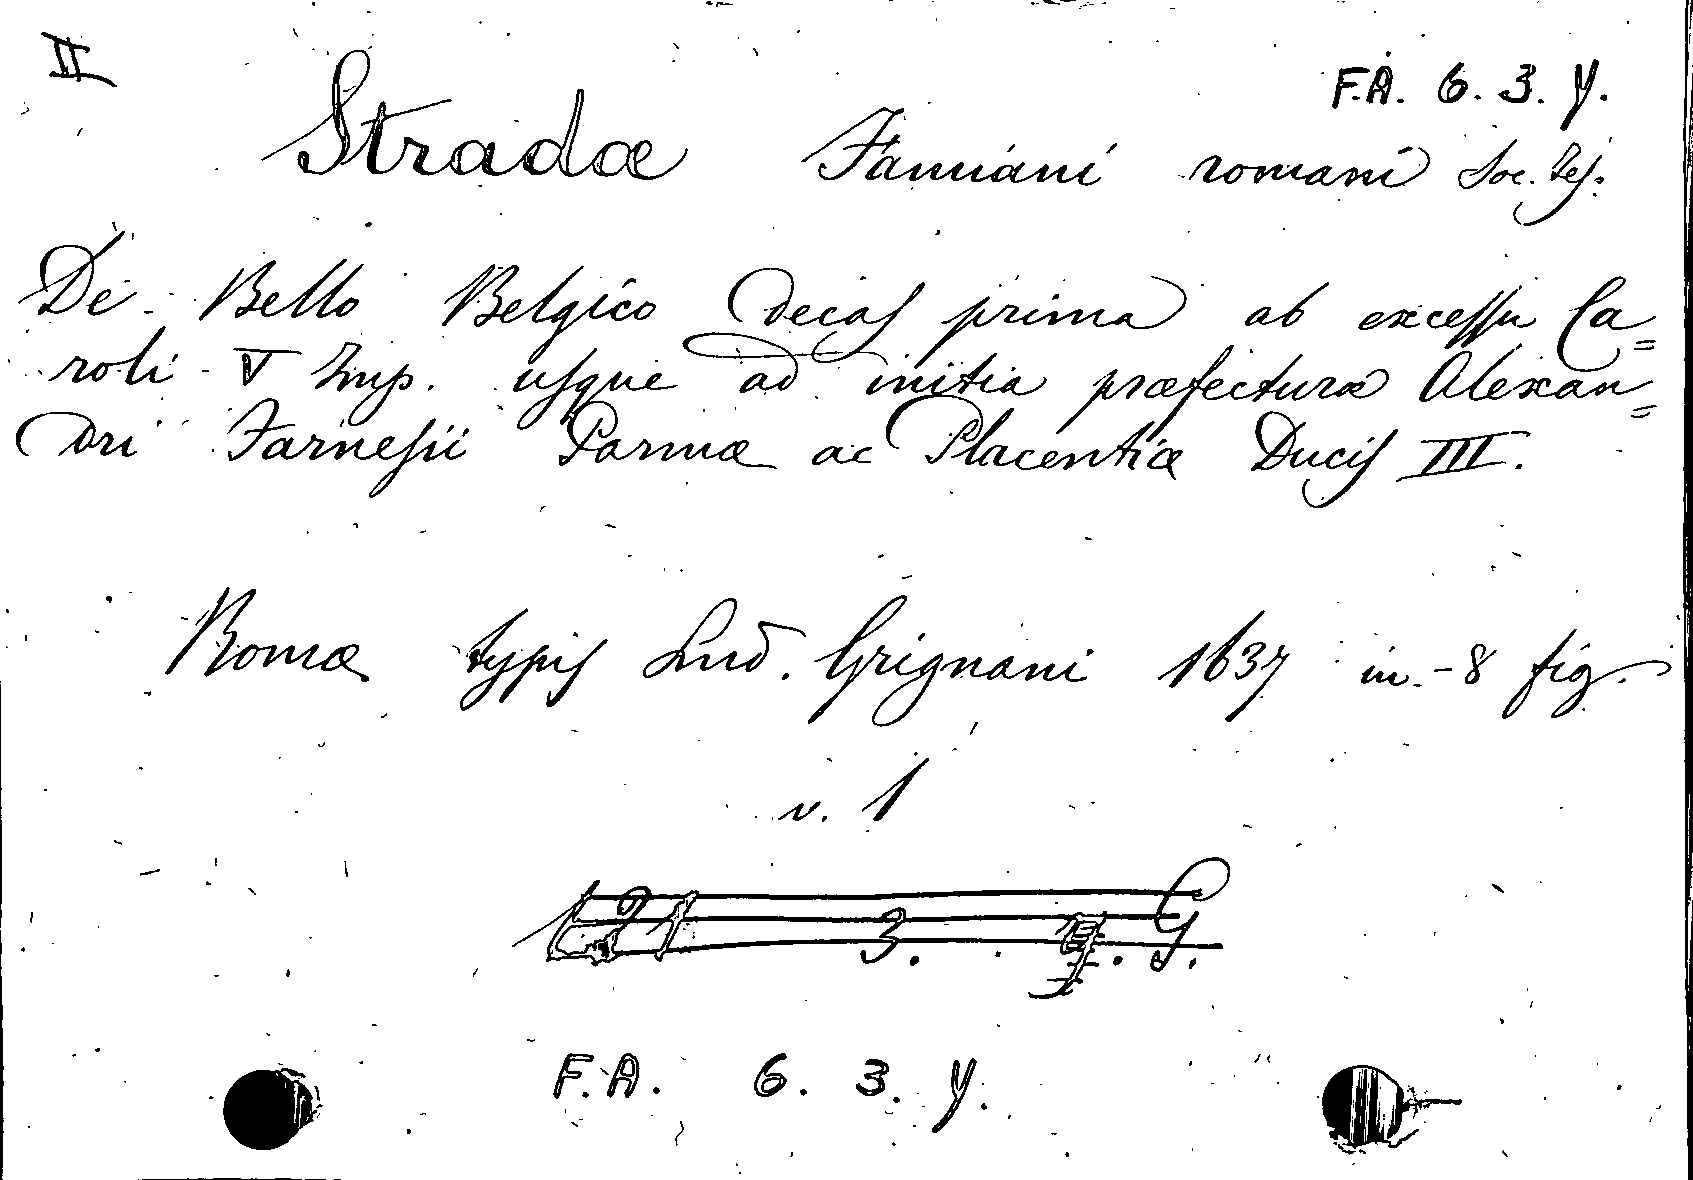 II
F.A. 6. 3. Y.
Stradæ Famiani romani Soc. Jes.
De Bello Belgico decas prima ab excessu Ca=
roli V Imp. usque ad initia præfecturæ Alexan=
dri Farnesii Parmæ ac Placentiæ Ducis III.
Romæ typis Lud. Grignani 1637 in-8 fig.
v. 1
3. G.
F.A. 6. 3. Y.